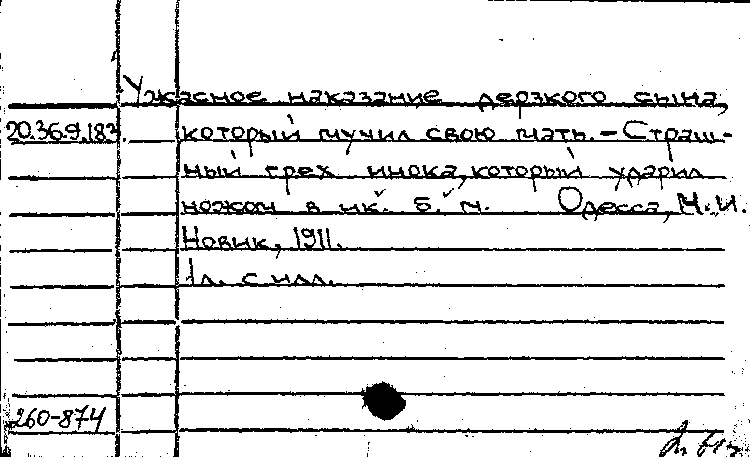 Ужасное наказание дерзкого сына,
20.36.9.183. который мучил свою мать. – Страш-
ный грех инока, который ударил
ножом в ик. б. м. Одесса, М. И.
Новик, 1911.
1 л. с илл.
260-874